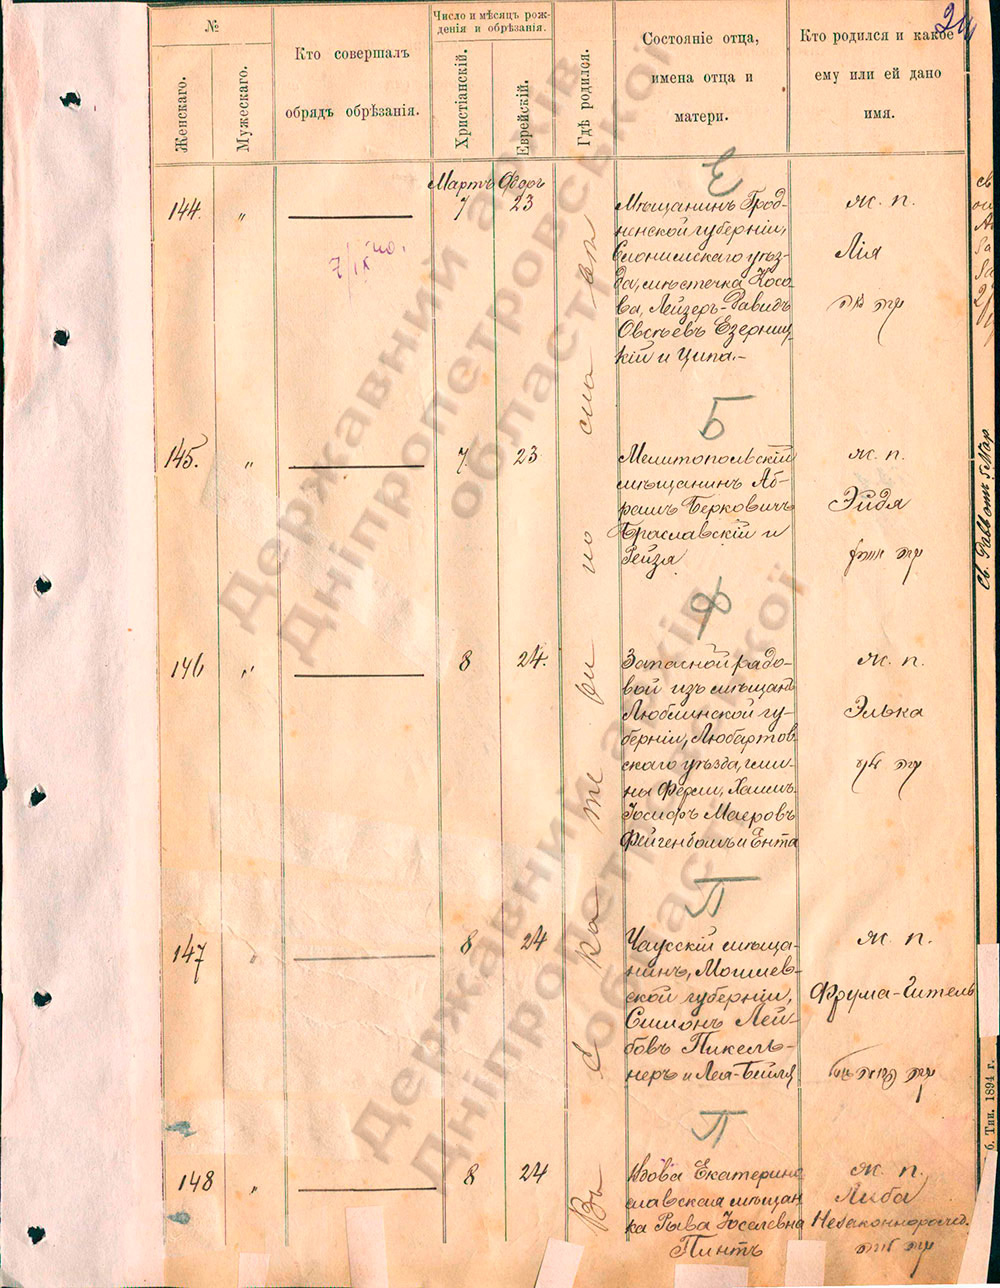 №
Женскаго.
Мужескаго.
Кто совершалъ
обрядъ обрѣзанія.
Число и мѣсяцъ рож-
денія и обрѣзанія.
Христіанскій.
Еврейскій.
Гдѣ родился.
Состояніе отца,
имена отца и
матери.
Кто родился и какое
ему или ей дано
имя.
Мартъ Одоръ
Е
144. „ 7 23
Мѣщанинъ Грод-
ненской губерніи,
Слонимскаго уѣз-
да, мѣстечка Косо-
ва, Лейзеръ-Давидъ
Овсѣевъ Езерниц-
кій и Ципа.-
ж. п.
Лія
Б
145. „ 7. 23
Мелитопольскій
мѣщанинъ Аб-
рамъ Берковичъ
Браславскій и
Рейзя
ж. п.
Эйдя
Ф
146 „ 8 24.
Запасной рядо-
вой изъ мѣщанъ
Люблинской гу-
берніи, Любартов-
скаго уѣзда, гми-
ны Фирли, Хаимъ-
Іосифъ Маеровъ
Фейгенбомъ и Ента
ж. п.
Элька
П
147 „ 8 24
Чаусскій мѣща-
нинъ, Могилев-
ской губерніи,
Симонъ Лей-
бовъ Пикель-
неръ и Лея-Бейля
ж. п.
Фрума-Гитель
П
148 „ 8 24
Вдова Екатерино-
славская мѣщан-
ка Рыва Іоселевна
Пинтъ
ж. п.
Либа
Незаконнорожд.
Въ Екатеринославѣ
б. Тип. 1894 г.
Державний архів
Дніпропетровської
області
Державний архів
Дніпропетровської
області